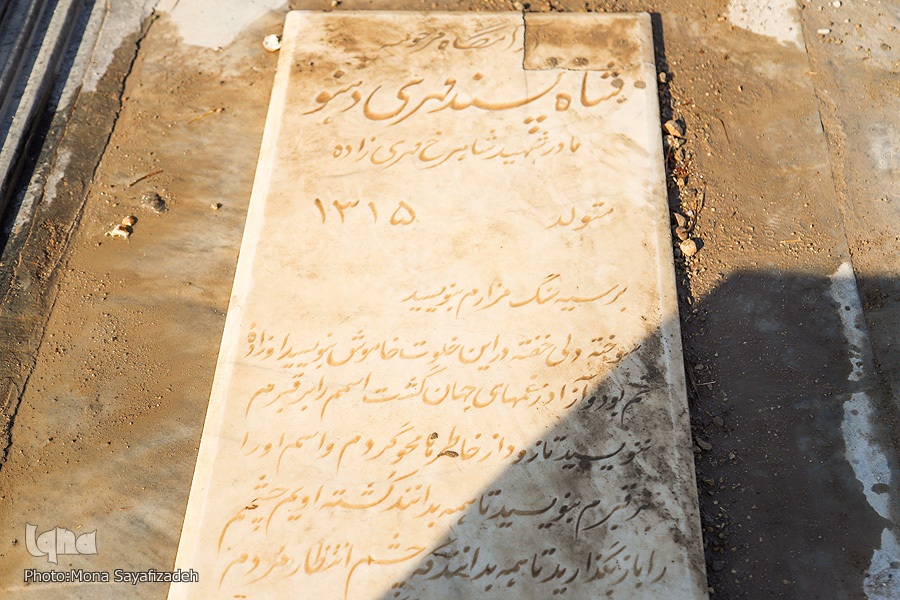 آرامگاه مرحومه
شاه پسند مهری دهنو
مادر شهید شاهرخ مهری زاده
متولد ۱۳۱۵
بر سینه سنگ مزارم بنویسید
سوخته دلی خفته در این خلوت خاموش بنویسید او زاده
غم بود و آزاد ز غمهای جهان گشت اسم را بر قبرم
ننویسید تا زود از خاطرها محو گردم و اسم او را
بر قبرم بنویسید تا همه بدانند گشته اویم چشمم
را باز بگذارید تا همه بدانند که چشم انتظار مردم
iqna
Photo:Mona Sayafizadeh